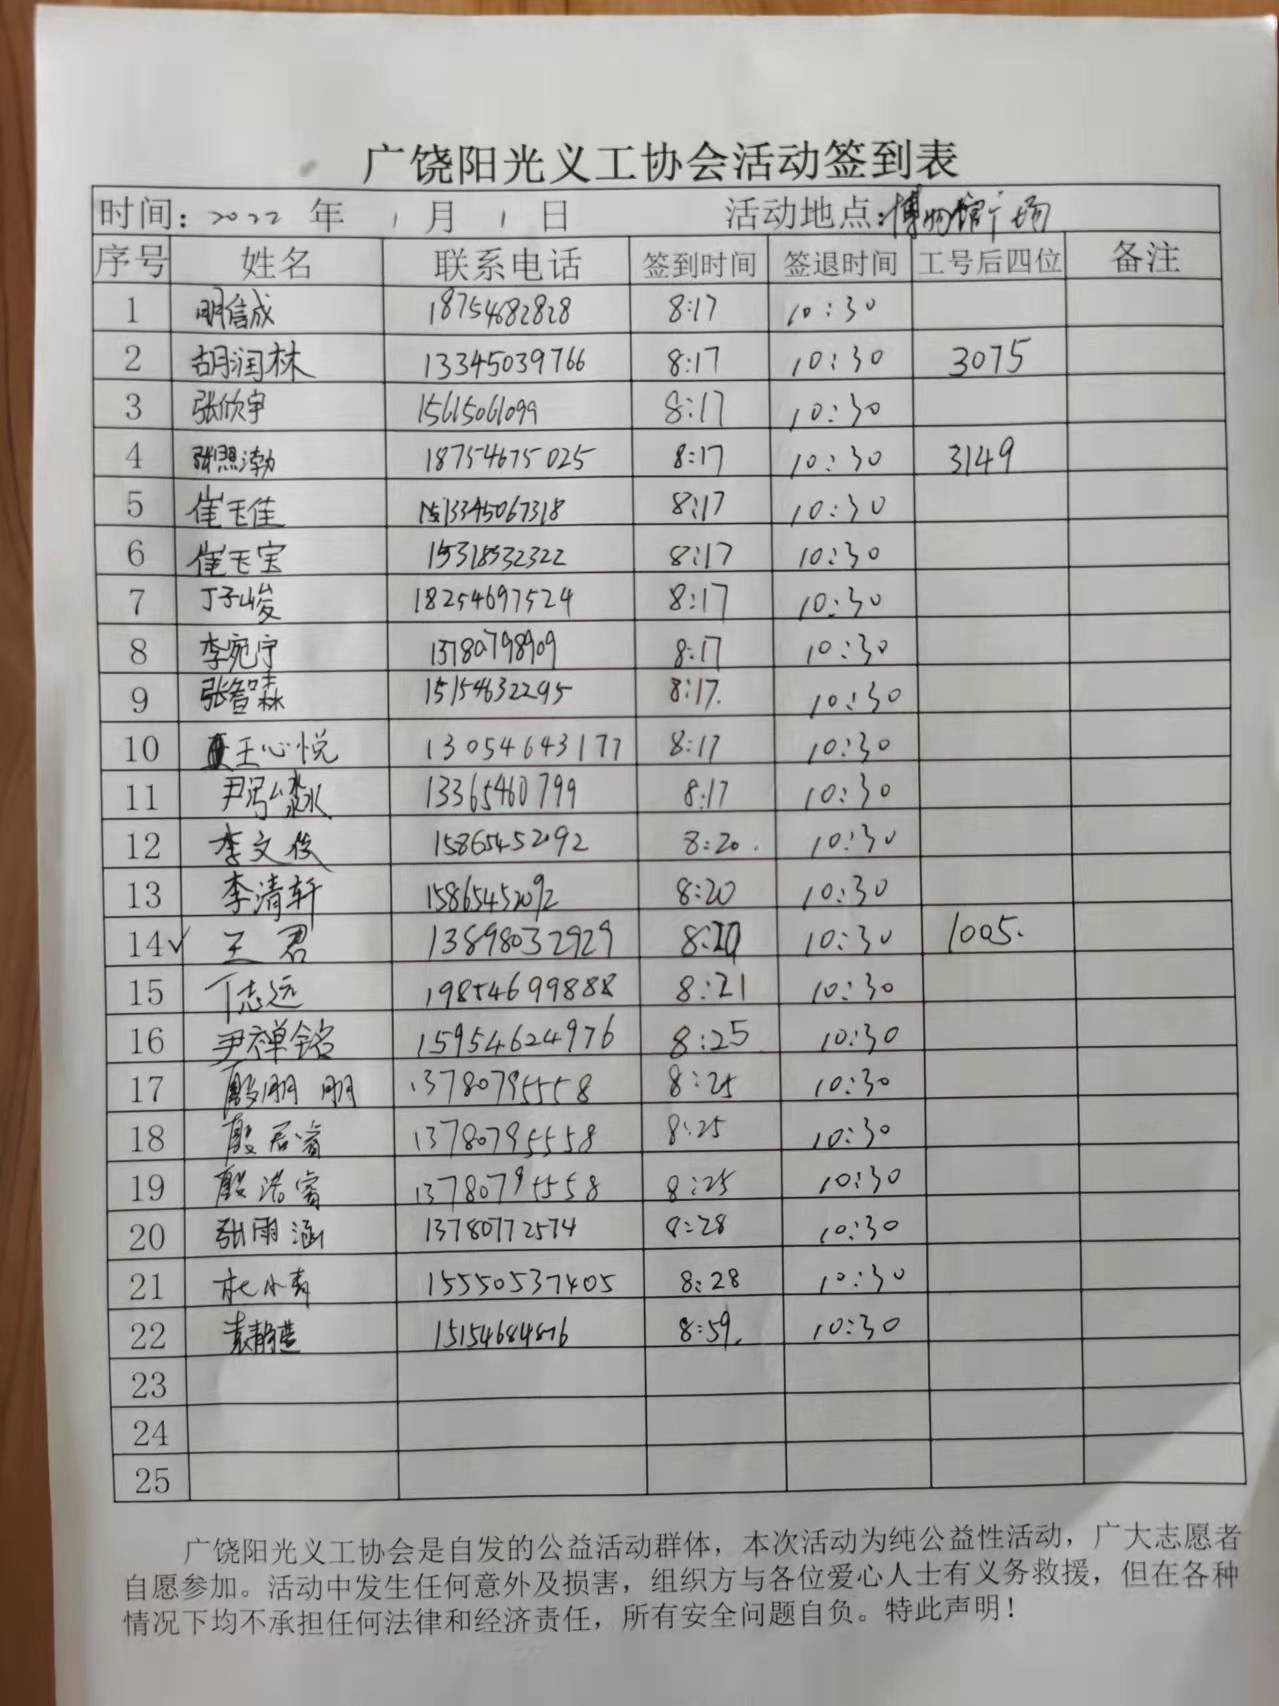 广饶阳光义工协会活动签到表
时间: 2022 年 1 月 1 日 活动地点: 博物馆广场
序号 姓名 联系电话 签到时间 签退时间 工号后四位 备注
1 明信成 18754682828 8:17 10:30
2 胡润林 13345039766 8:17 10:30 3075
3 张欣宇 15615061099 8:17 10:30
4 张熙渤 18754675025 8:17 10:30 3149
5 崔玉佳 13345067318 8:17 10:30
6 崔玉宝 15318532322 8:17 10:30
7 丁子峻 18254697524 8:17 10:30
8 李宛宁 13780798909 8:17 10:30
9 张智森 15154632295 8:17. 10:30
10 王心悦 13054643177 8:17 10:30
11 尹弘淼 13365460799 8:17 10:30
12 李文俊 15865452092 8:20. 10:30
13 李清轩 15865452092 8:20 10:30
14✓ 王君 13898032929 8:20 10:30 1005.
15 丁志远 19854699888 8:21 10:30
16 尹禅铭 15954624976 8:25 10:30
17 殷朋朋 13780795558 8:25 10:30
18 殷君睿 13780795558 8:25 10:30
19 殷浩睿 13780795558 8:25 10:30
20 张雨涵 13780772574 8:28 10:30
21 杜小青 15550537405 8:28 10:30
22 袁静 8:59. 10:30
23
24
25
广饶阳光义工协会是自发的公益活动群体，本次活动为纯公益性活动，广大志愿者
自愿参加。活动中发生任何意外及损害，组织方与各位爱心人士有义务救援，但在各种
情况下均不承担任何法律和经济责任，所有安全问题自负。特此声明！